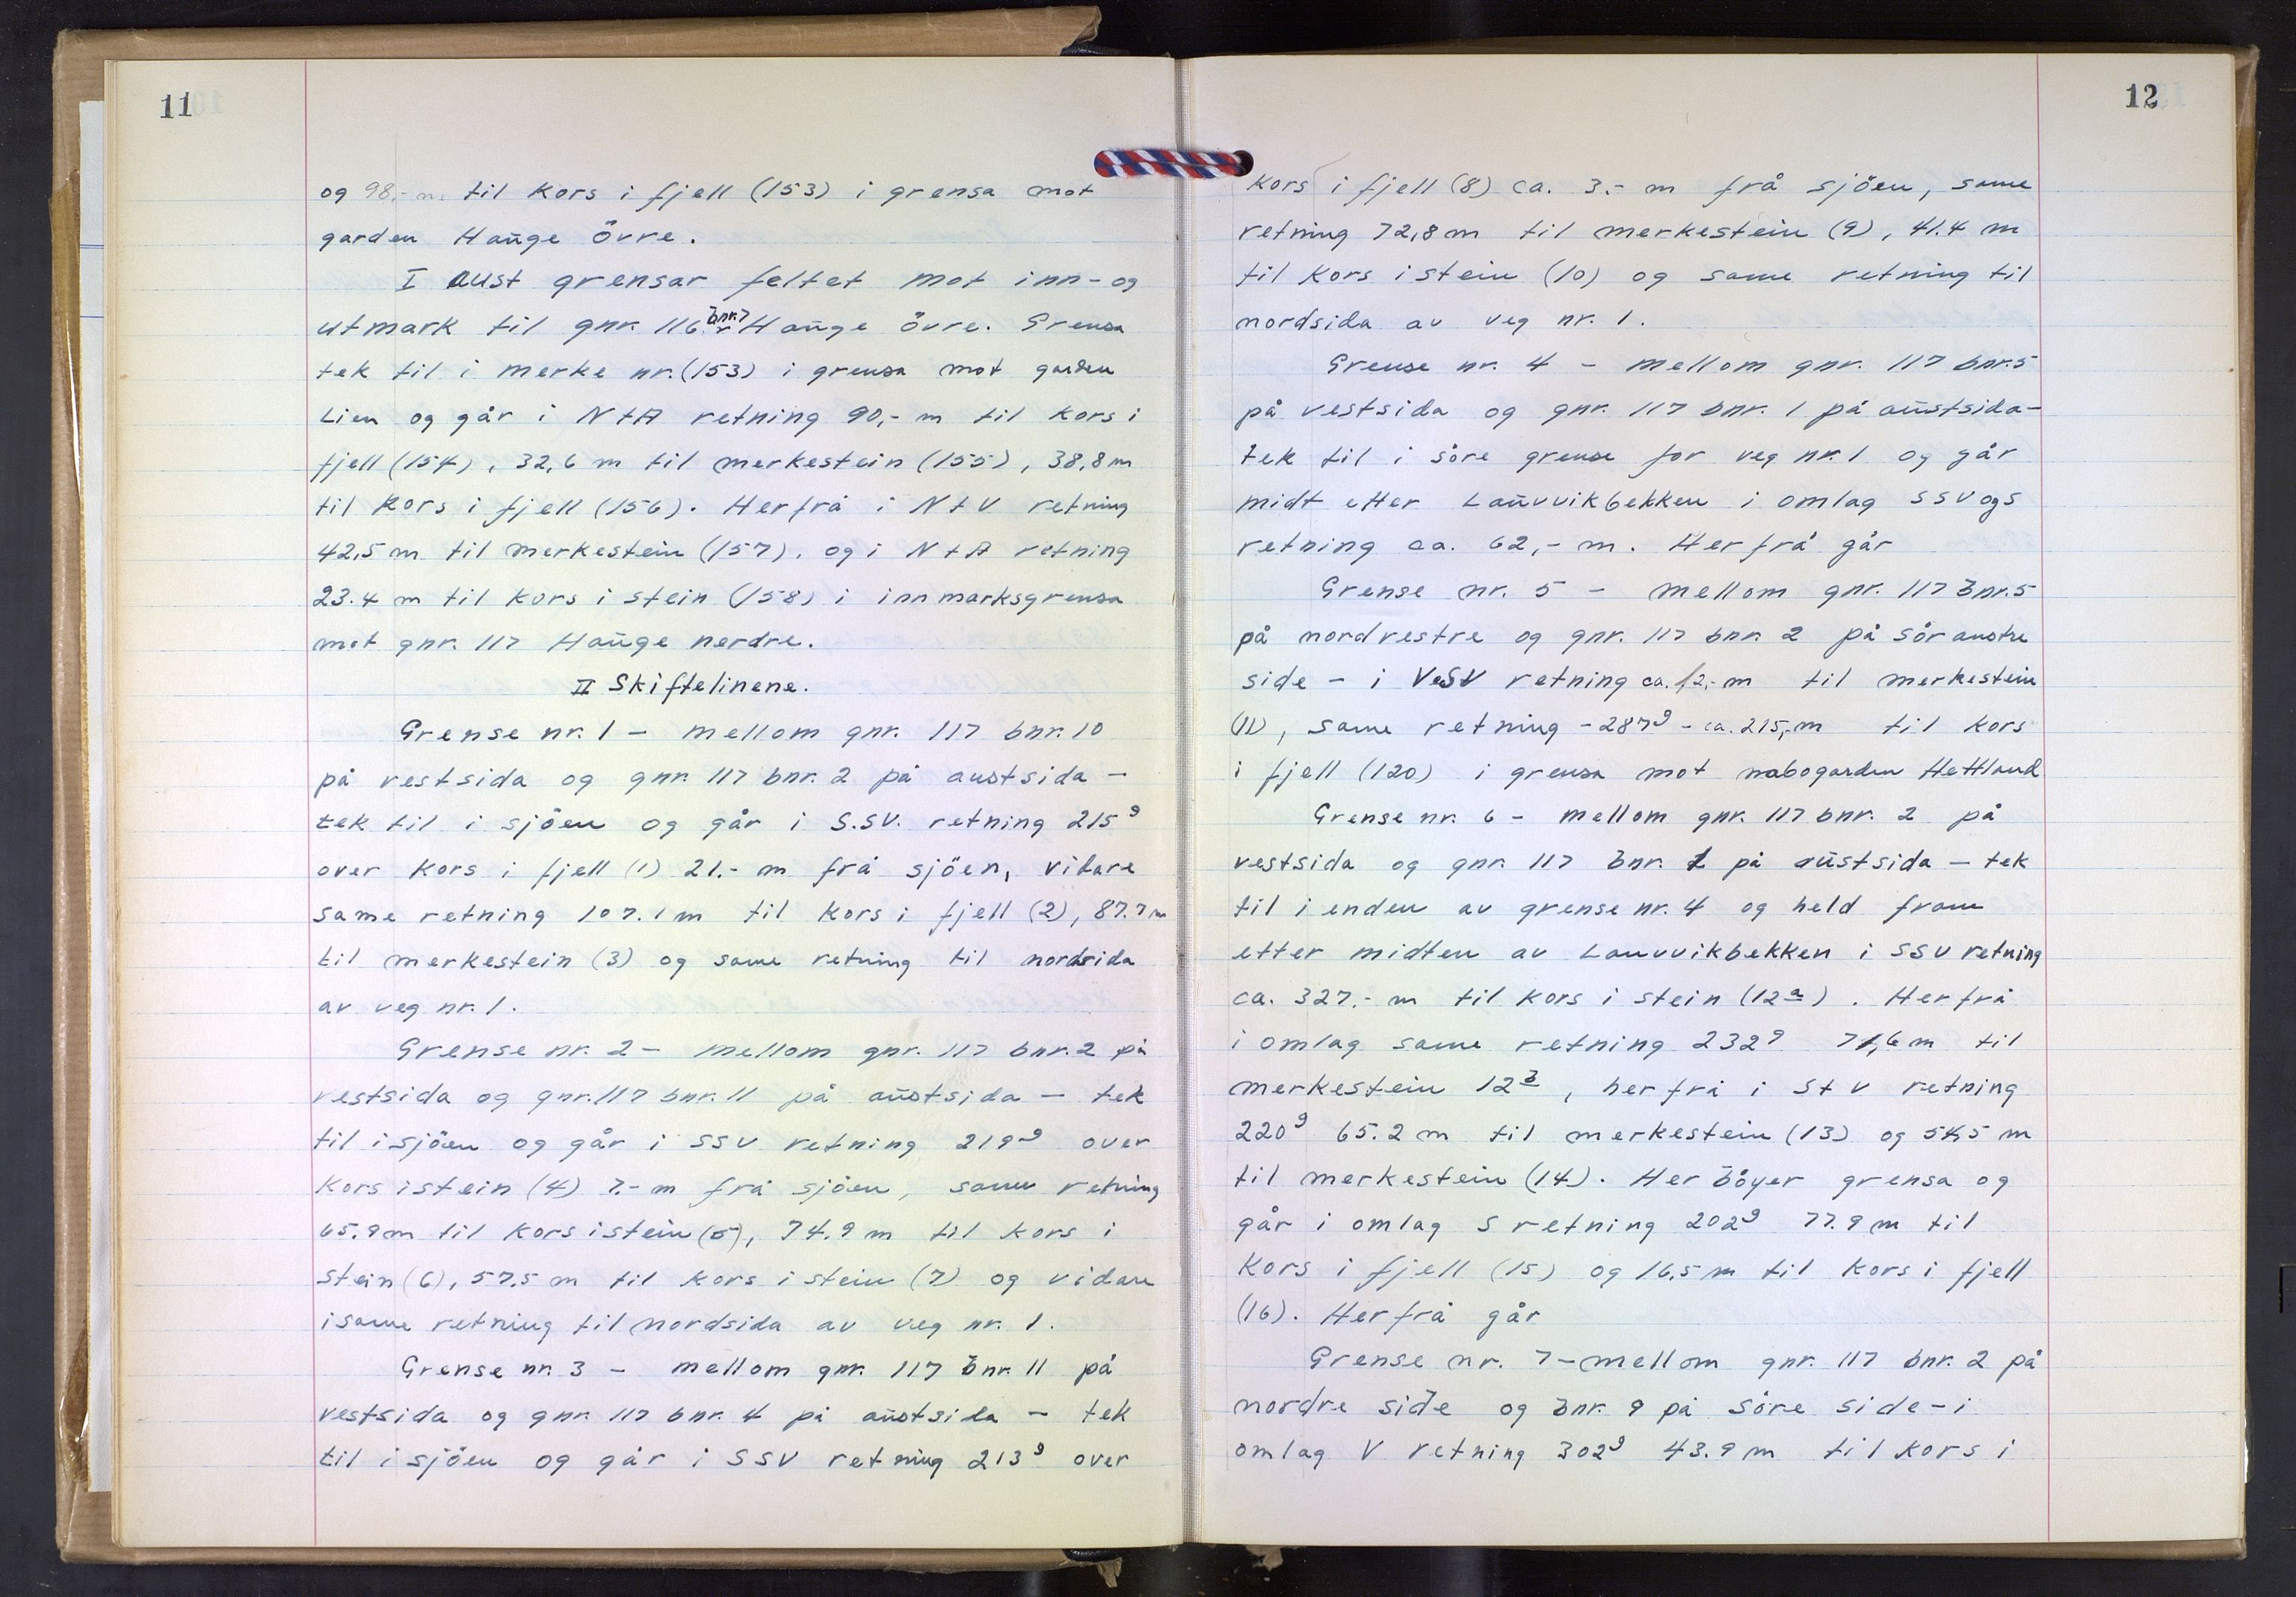 11
og 98,- m til kors i fjell (153) i grensa mot
garden Hauge övre.
I aust grensar feltet mot inn- og
utmark til gnr. 116 bnr. 7 Hauge övre. Grensa
tek til i merke nr. (153) i grensa mot garden
Lien og går i N t A retning 90,- m til kors i
fjell (154), 32,6 m til merkestein (155), 38,8 m
til kors i fjell (156). Herfrå i N t V retning
42,5 m til merkestein (157), og i N t A retning
23.4 m til kors i stein (158) i innmarksgrensa
mot gnr. 117 Hauge nerdre.
II Skiftelinene.
Grense nr. 1 - mellom gnr. 117 bnr. 10
på vestsida og gnr. 117 bnr. 2 på austsida -
tek til i sjöen og går i S.SV. retning 215g
over kors i fjell (1) 21.- m frå sjöen, vidare
same retning 107.1 m til kors i fjell (2), 87.7 m
til merkestein (3) og same retning til nordsida
av veg nr. 1.
Grense nr. 2 - mellom gnr. 117 bnr. 2 på
vestsida og gnr. 117 bnr. 11 på austsida - tek
til i sjöen og går i SSV retning 219g over
kors i stein (4) 7.- m frå sjöen, same retning
65.9 m til kors i stein (5), 74.9 m til kors i
stein (6), 57.5 m til kors i stein (7) og vidare
i same retning til nordsida av veg nr. 1.
Grense nr. 3 - mellom gnr. 117 bnr. 11 på
vestsida og gnr. 117 bnr. 4 på austsida - tek
til i sjöen og går i SSV retning 213g over
12
kors i fjell (8) ca. 3.- m frå sjöen, same
retning 72,8 m til merkestein (9), 41.4 m
til kors i stein (10) og same retning til
nordsida av veg nr. 1.
Grense nr. 4 - mellom gnr. 117 bnr. 5
på vestsida og gnr. 117 bnr. 1 på austsida -
tek til i söre grense for veg nr. 1 og går
midt etter Lauvvikbekken i omlag SSV og S
retning ca. 62,- m. Herfrå går
Grense nr. 5 - mellom gnr. 117 bnr. 5
på nordvestre og gnr. 117 bnr. 2 på sör austre
side - i VSV retning ca. 12,- m til merkestein
(11), same retning - 287g - ca. 215,- m til kors
i fjell (120) i grensa mot nabogarden Hettland
Grense nr. 6 - mellom gnr. 117 bnr. 2 på
vestsida og gnr. 117 bnr. 1 på austsida - tek
til i enden av grense nr. 4 og held fram
etter midten av Lauvvikbekken i SSV retning
ca. 327.- m til kors i stein (12a). Herfrå
i omlag same retning 232g 71,6 m til
merkestein 12b, herfrå i S t V retning
220g 65.2 m til merkestein (13) og 54,5 m
til merkestein (14). Her böyer grensa og
går i omlag S retning 202g 77.9 m til
kors i fjell (15) og 16,5 m til kors i fjell
(16). Herfrå går
Grense nr. 7 - mellom gnr. 117 bnr. 2 på
nordre side og bnr. 9 på söre side - i
omlag V retning 302g 43.9 m til kors i